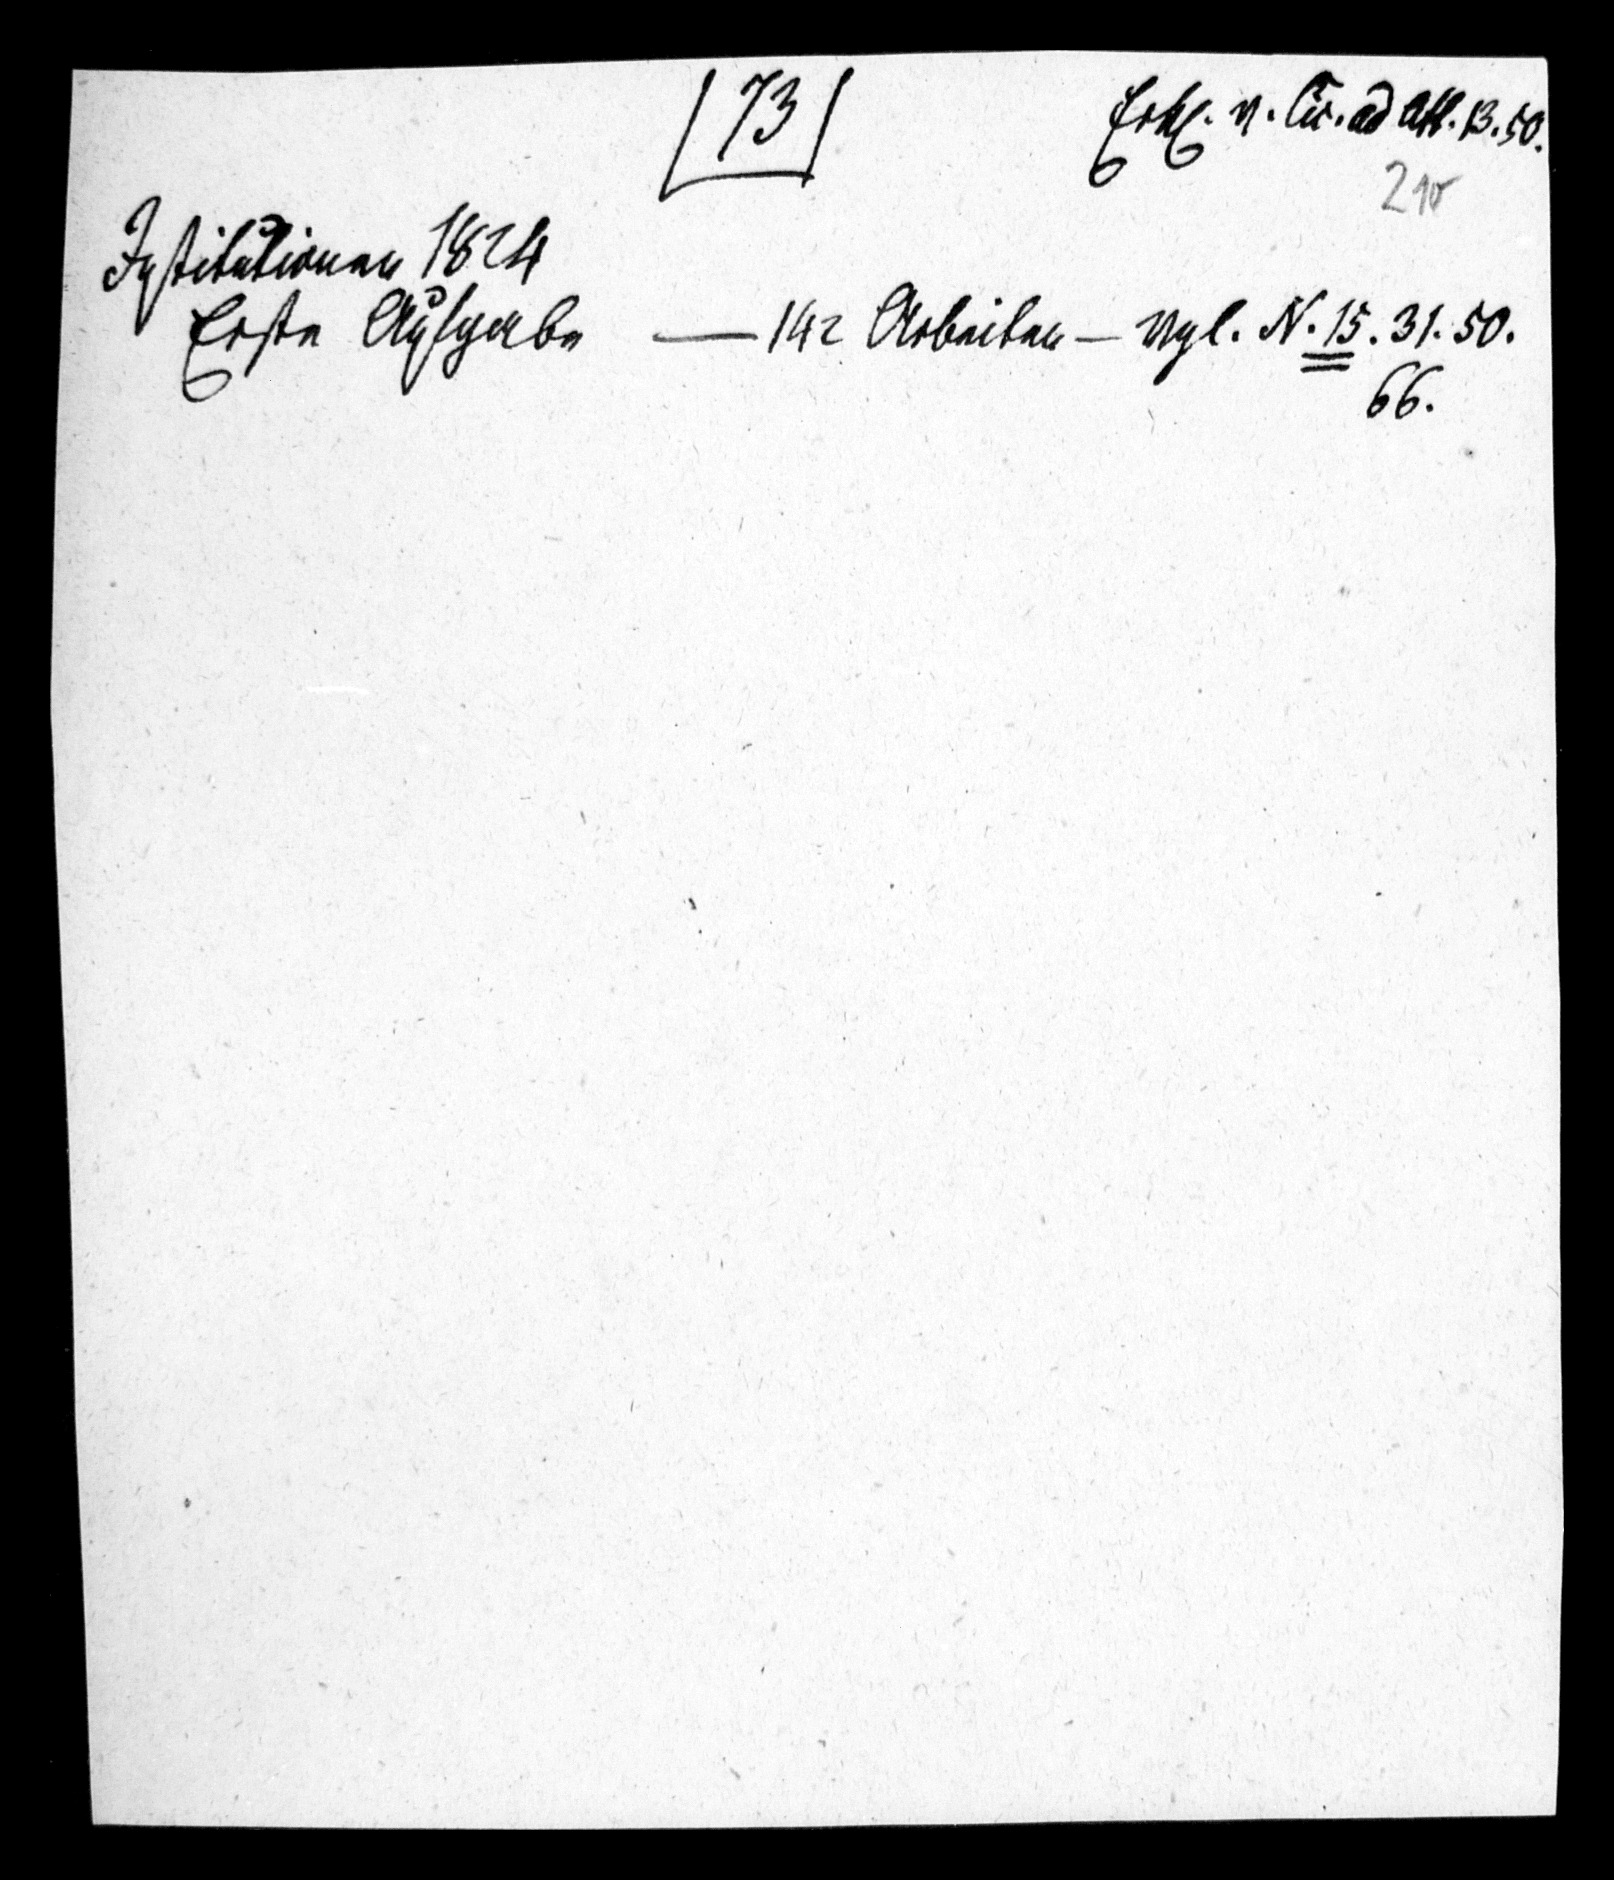 73
Erkl. v. Cic. ad Att. 13. 50.
210
Institutionen 1824
Erste Aufgabe — 142 Arbeiten — vgl. N. 15. 31. 50.
66.